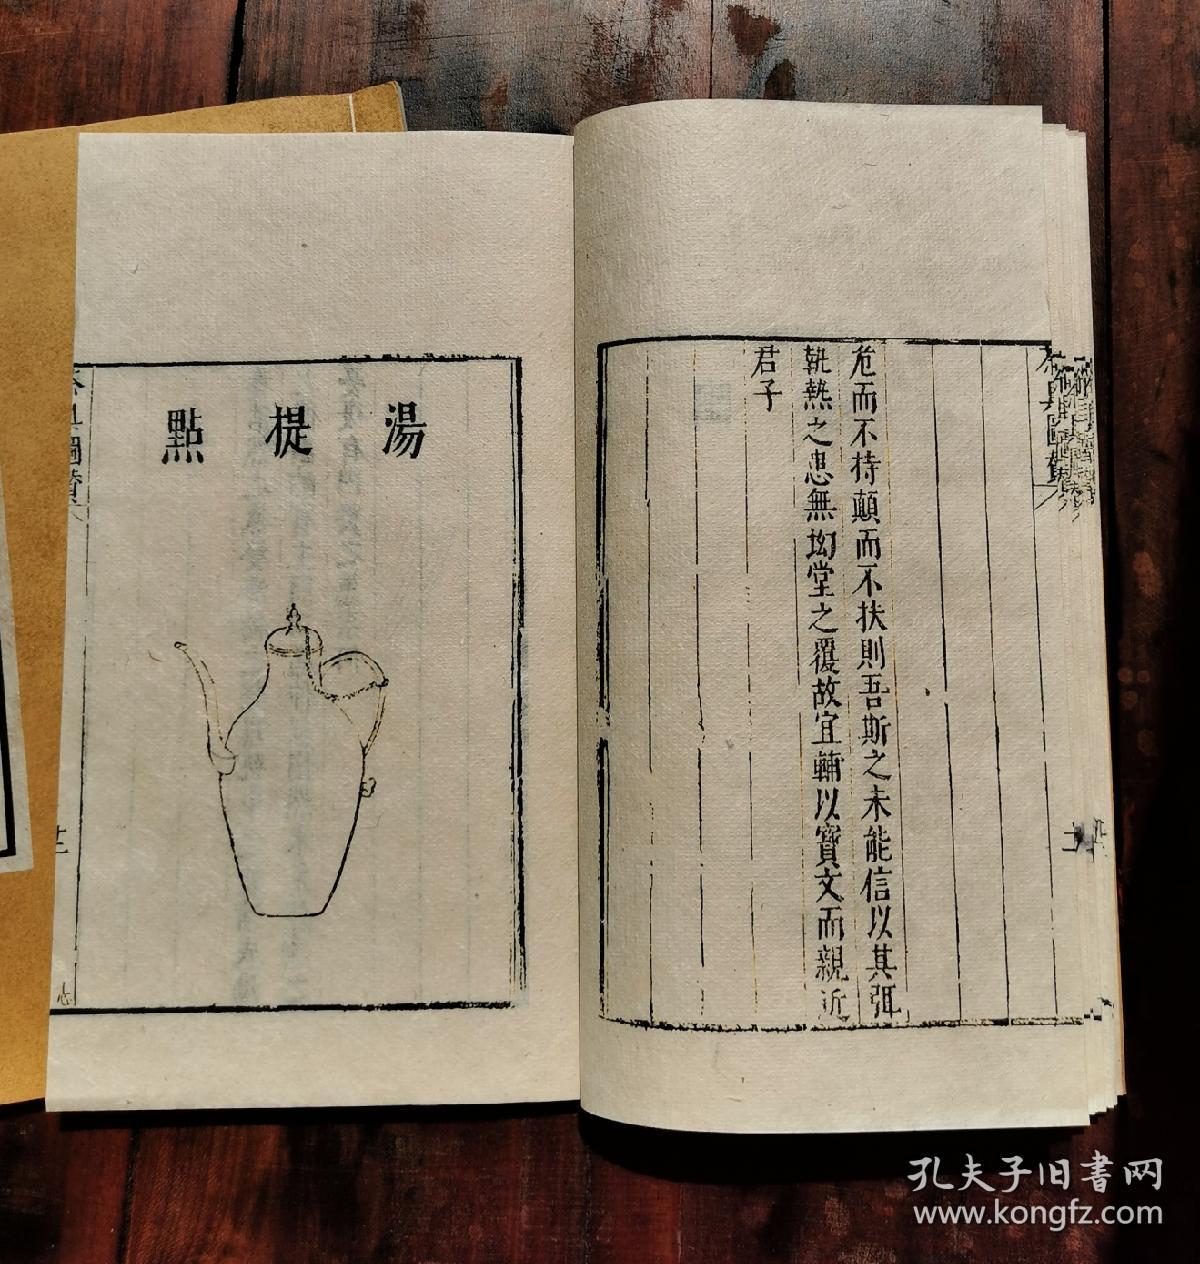 危而不持顛而不扶則吾斯之未能信以其弭
執熱之患無坳堂之覆故宜輔以寳文而親近
君子
湯提點
茶具圖贊
孔夫子旧書网
www.kongfz.com